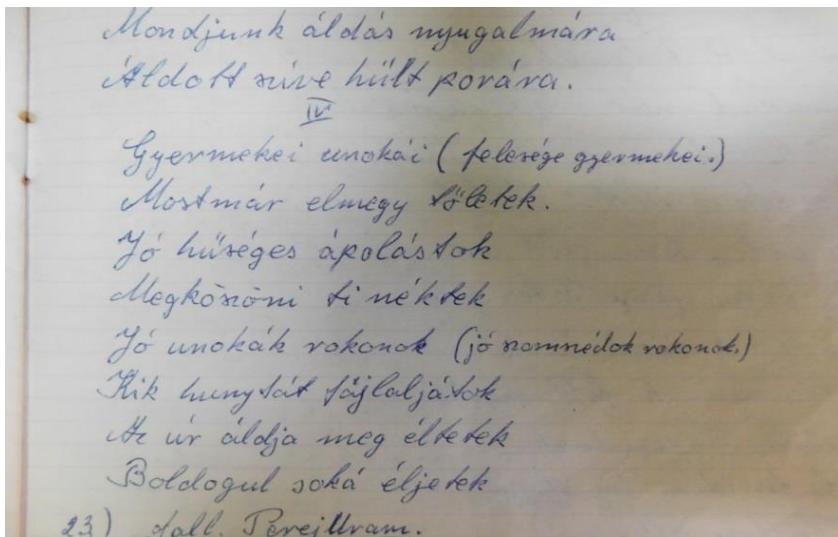 Mondjunk áldás nyugalmára
Áldott szíve hűlt porára.
IV
Gyermekei unokái (felesége gyermekei.)
Mostmár elmegy tőletek.
Jó hűséges ápolástok
Megköszöni ti néktek
Jó unokák rokonok (jó szomszédok rokonok.)
Kik hunytát fájlaljátok
Az úr áldja meg éltetek
Boldogul soká éljetek
23) dall.